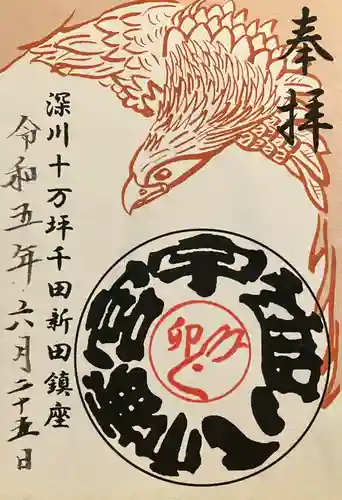 奉拝
深川十万坪千田新田鎮座
令和五年六月二十五日
宇迦八幡宮
卯